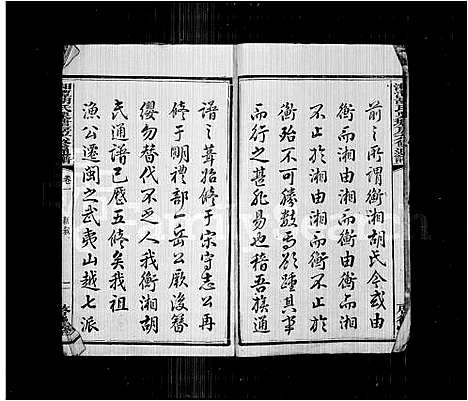 前之所謂衡湘胡氏今或由
衡而湘由湘而衡由衡而湘
不止於湘由湘而衡不止於
衡殆不可勝數焉欲踵其事
而行之甚非易也稽吾族通
譜之葺始修于宋守志公再
修于明禮部一岳公厥後簪
纓勿替代不乏人我衡湘胡
氏通譜已歷五修矣我祖
漁公遷閩之武夷山越七派